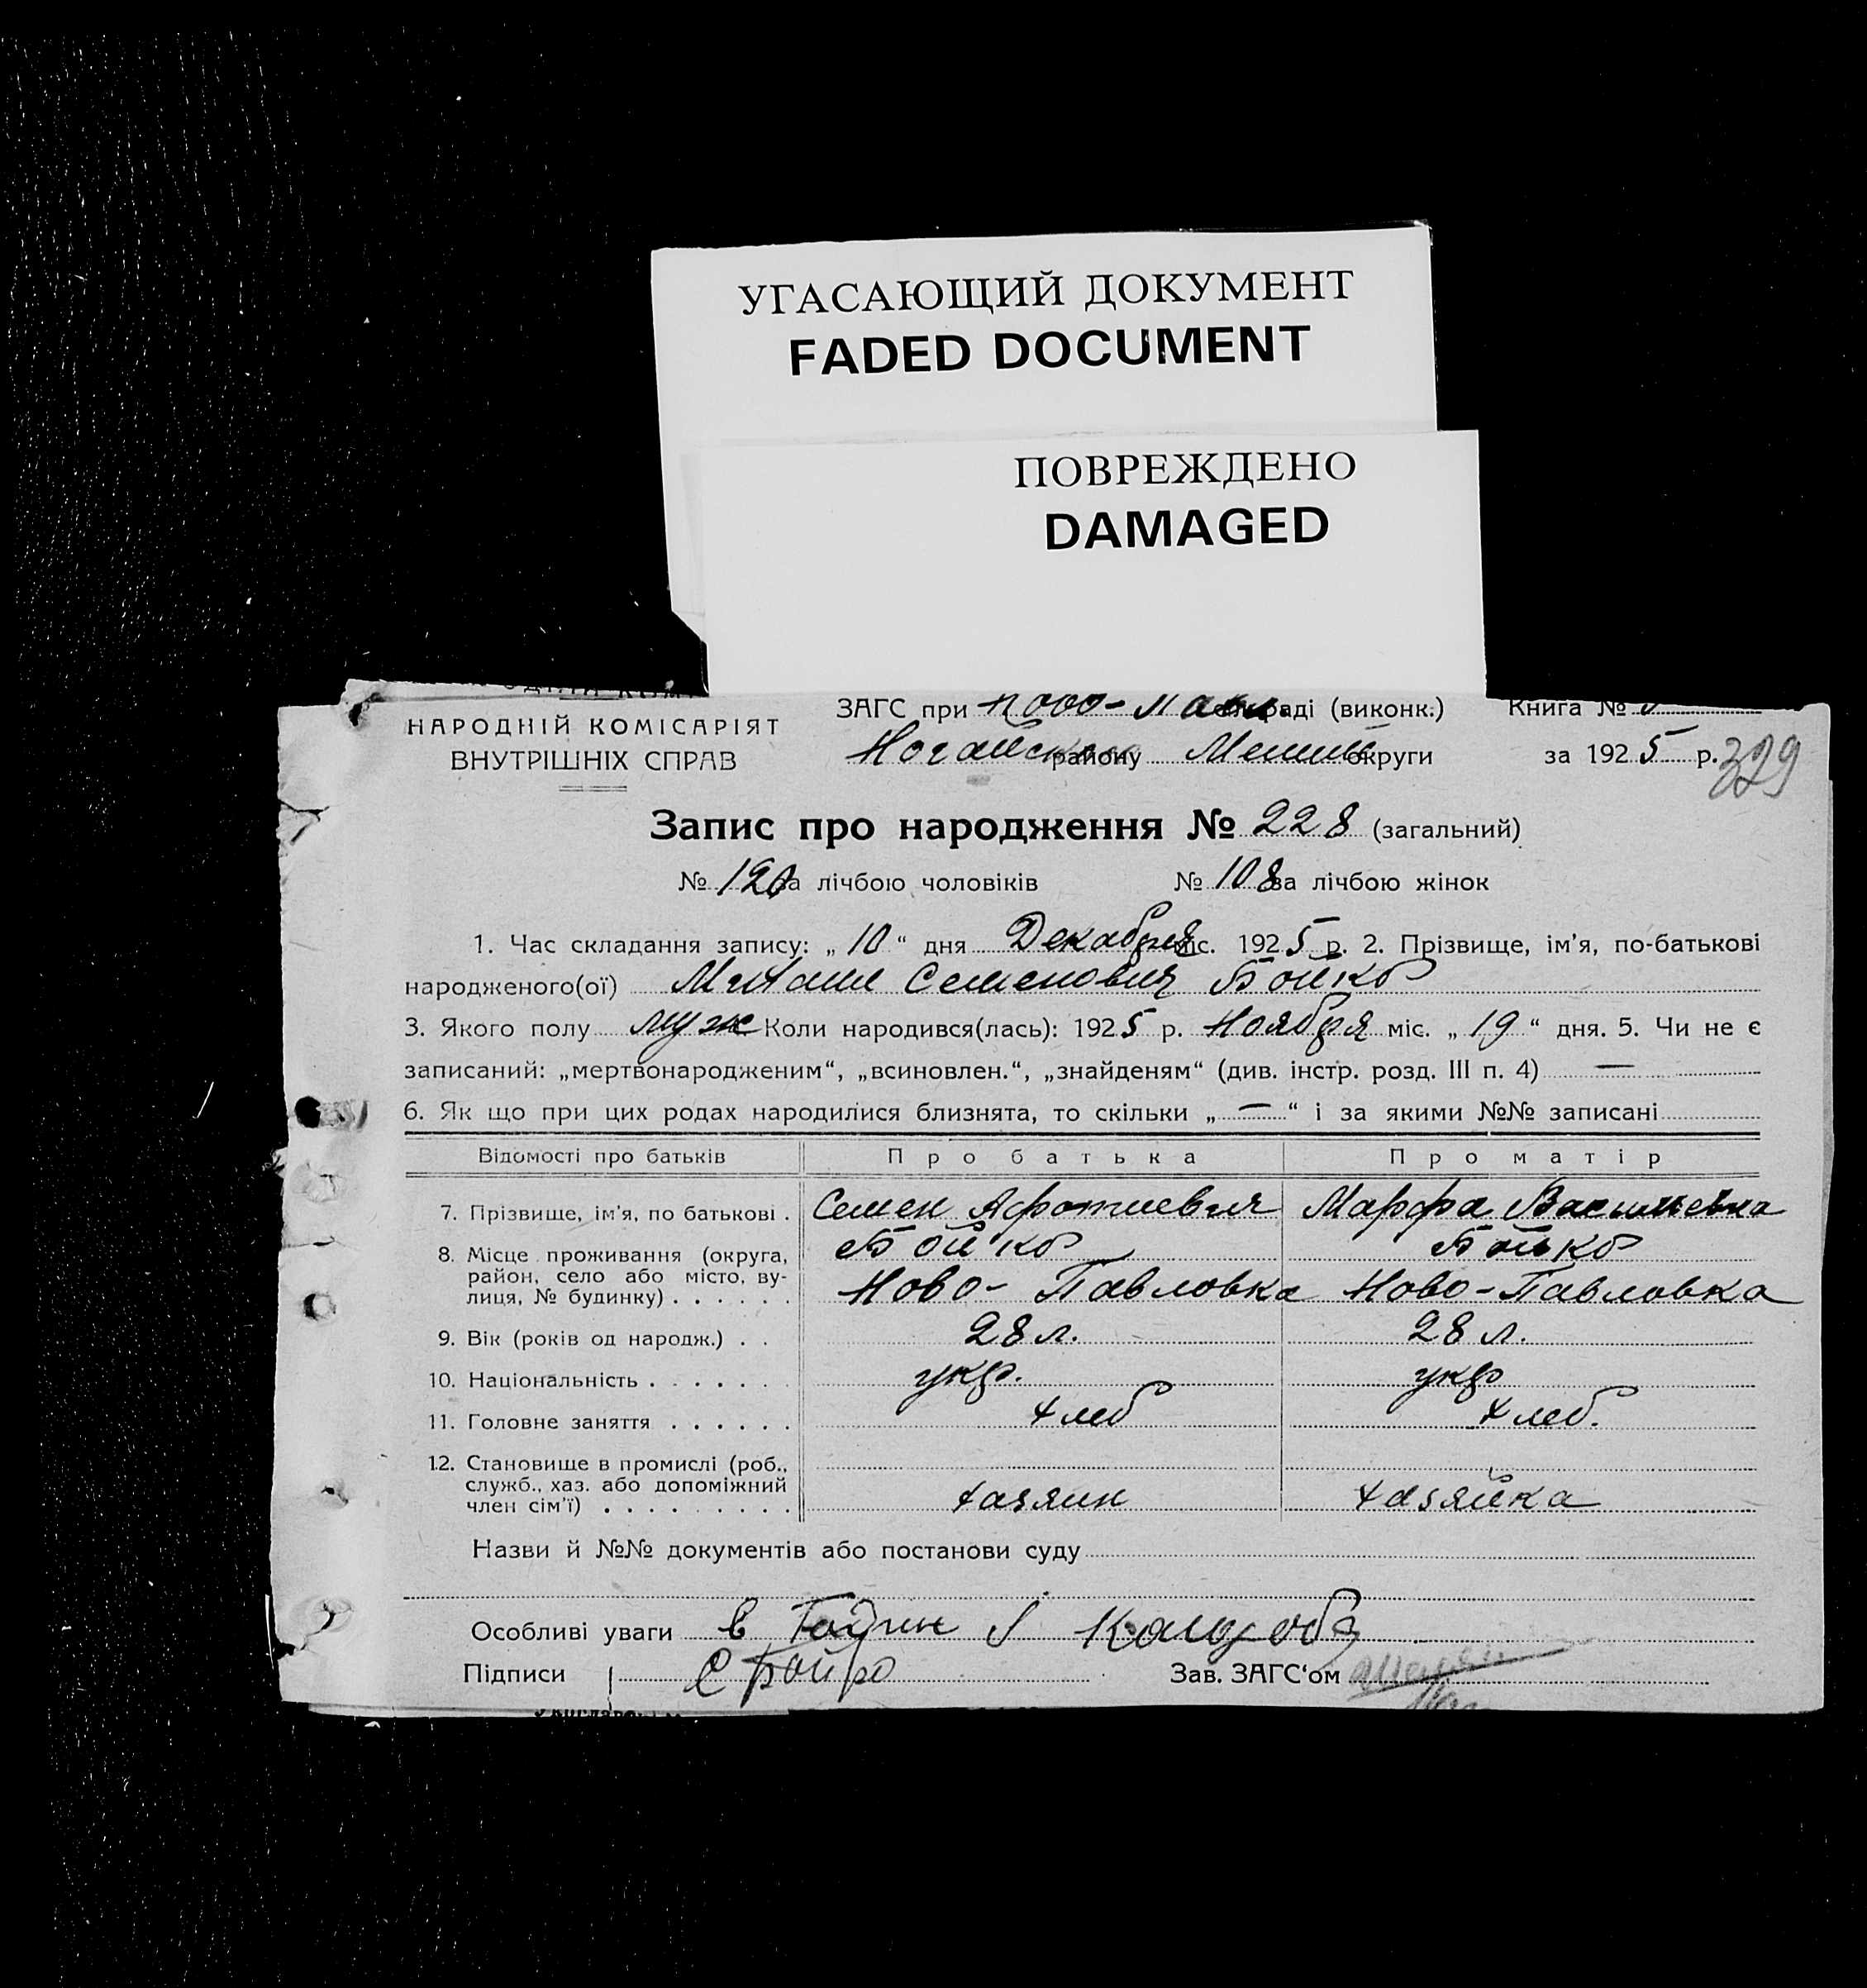 УГАСАЮЩИЙ ДОКУМЕНТ
FADED DOCUMENT
ПОВРЕЖДЕНО
DAMAGED
НАРОДНІЙ КОМІСАРІЯТ
ВНУТРІШНІХ СПРАВ
ЗАГС при Ново-Павл. раді (виконк.) Книга №
Ногайском району Мелит округи за 1925 р. 329
Запис про народження № 228 (загальний)
№ 120 за лічбою чоловіків № 108 за лічбою жінок
1. Час складання запису: „10“ дня Декабря міс. 1925 р. 2. Прізвище, ім’я, по-батькові
народженого(ої) Михаил Семенович Бойко
3. Якого полу муж Коли народився(лась): 1925 р. Ноября міс. „19“ дня. 5. Чи не є
записаний: „мертвонародженим“, „всиновлен.“, „знайденям“ (див. інстр. розд. III п. 4) —
6. Як що при цих родах народилися близнята, то скільки „—“ і за якими №№ записані
Відомості про батьків Про батька Про матір
7. Прізвище, ім’я, по батькові . Семен Марфа Васильевна
Бойко Бойко
8. Місце проживання (округа,
район, село або місто, ву-
лиця, № будинку) . . . . . . Ново-Павловка Ново-Павловка
9. Вік (років од народж.) . . 28 л. 28 л.
10. Національність . . . . . . укр. укр
11. Головне заняття . . . . . . хлеб хлеб.
12. Становище в промислі (роб.,
служб., хаз. або допоміжний
член сім’ї) . . . . . . . . . хазяин хазяйка
Назви й №№ документів або постанови суду
Особливі уваги в
Підписи С Бойко Зав. ЗАГС‘ом